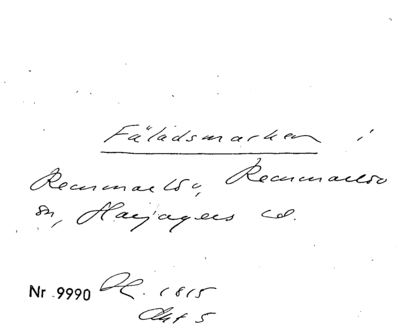 Fäladsmarken i
Remmarlöv, Remmarlöv
sn, Harjagers hd.
Nr 9990 Dl. 1815
Akt 5